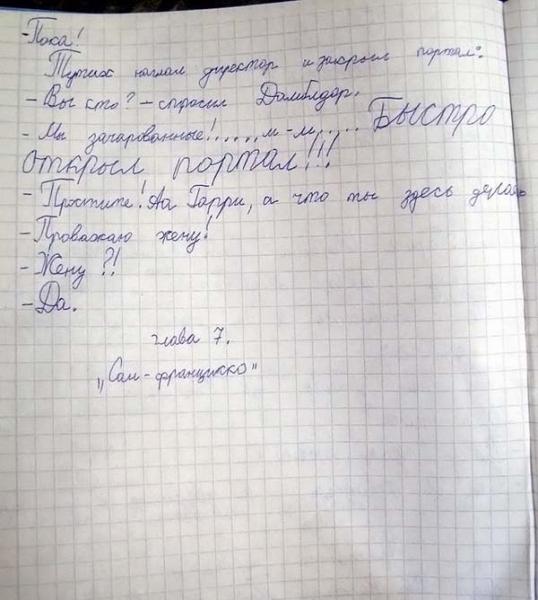 - Пока!
Тут нас нагнал директор и закрыл портал:
- Вы кто? - спросил Дамблдор.
- Мы зачарованные!..... м-м..... Быстро
открыл портал!!!
- Простите! Аа Гарри, а что ты здесь делаеш
- Проважаю жену!
- Жену?!
- Да.
глава 7.
„Сан-франциско"